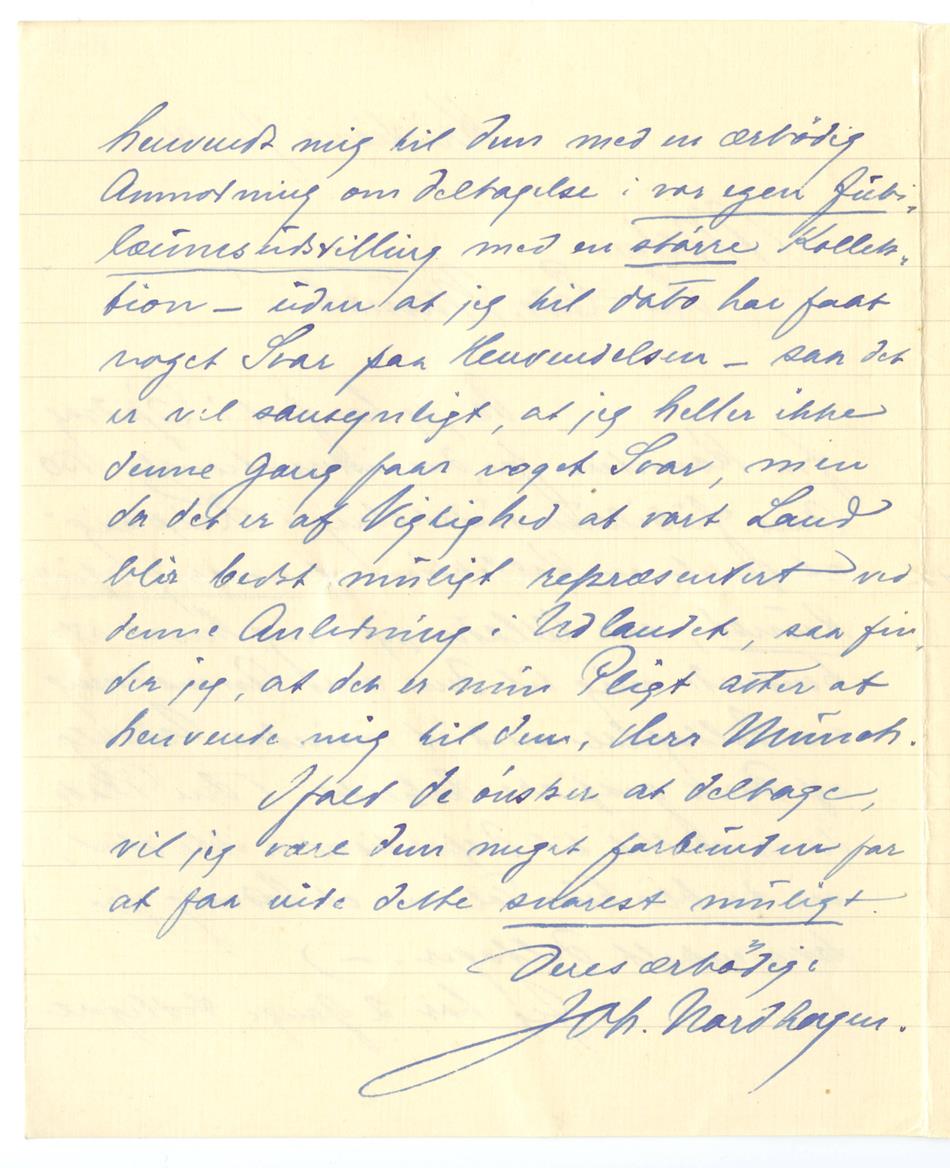 henvendt mig til dem med en ærbödig
Anmodning om deltagelse i vor egen Jubi-
læumsudstilling med en större Kollek-
tion – uden at jeg til dato har faat
noget Svar paa Henvendelsen – saa det
er vel sansynligt, at jeg heller ikke
denne Gang faar noget Svar, men
da det er af Vigtighed at vort Land
blir bedst muligt repræsentert ved
denne Anledning i Udlandet, saa fin-
der jeg, at det er min Pligt atter at
henvende mig til dem, Herr Munch.
Ifald de önsker at deltage,
vil jeg være dem meget forbunden for
at faa vide dette snarest muligt.
Deres ærbödige
Joh. Nordhagen.